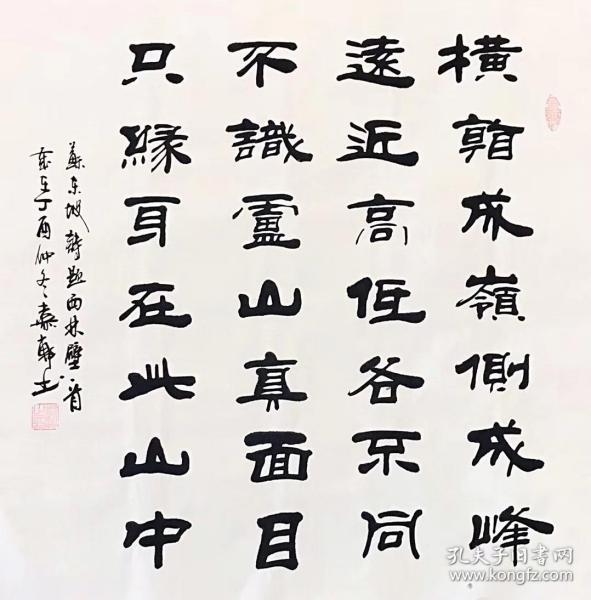 橫看成嶺側成峰
遠近高低各不同
不識盧山真面目
只緣身在此山中
蘇東坡詩題西林壁一首
歲在丁酉仲冬
孔夫子旧书网
www.kongfz.com